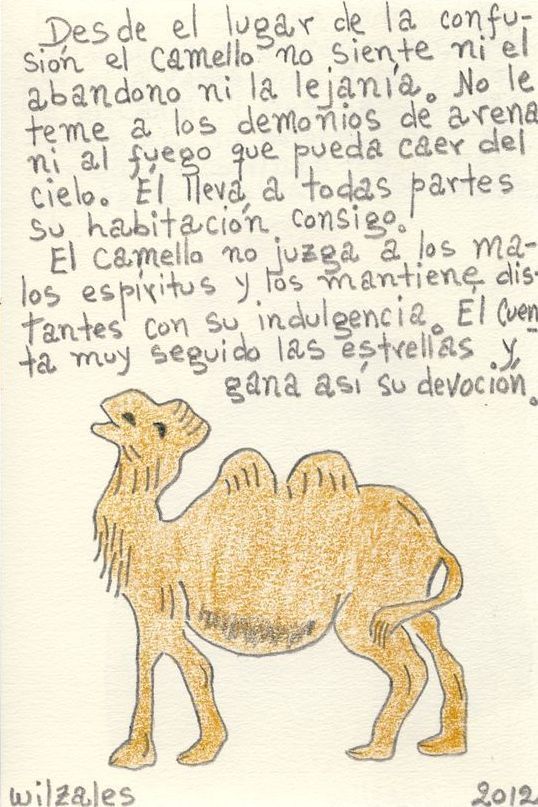 Desde el lugar de la confu-
sión el Camello no siente ni el
abandono ni la lejanía. No le
teme a los demonios de arena
ni al fuego que pueda caer del
cielo. Él lleva a todas partes
su habitación consigo.
El Camello no juzga a los ma-
los espíritus y los mantiene dis-
tantes con su indulgencia. Él Cuen-
ta muy seguido las estrellas y
gana así su devoción.
wilzales
2012